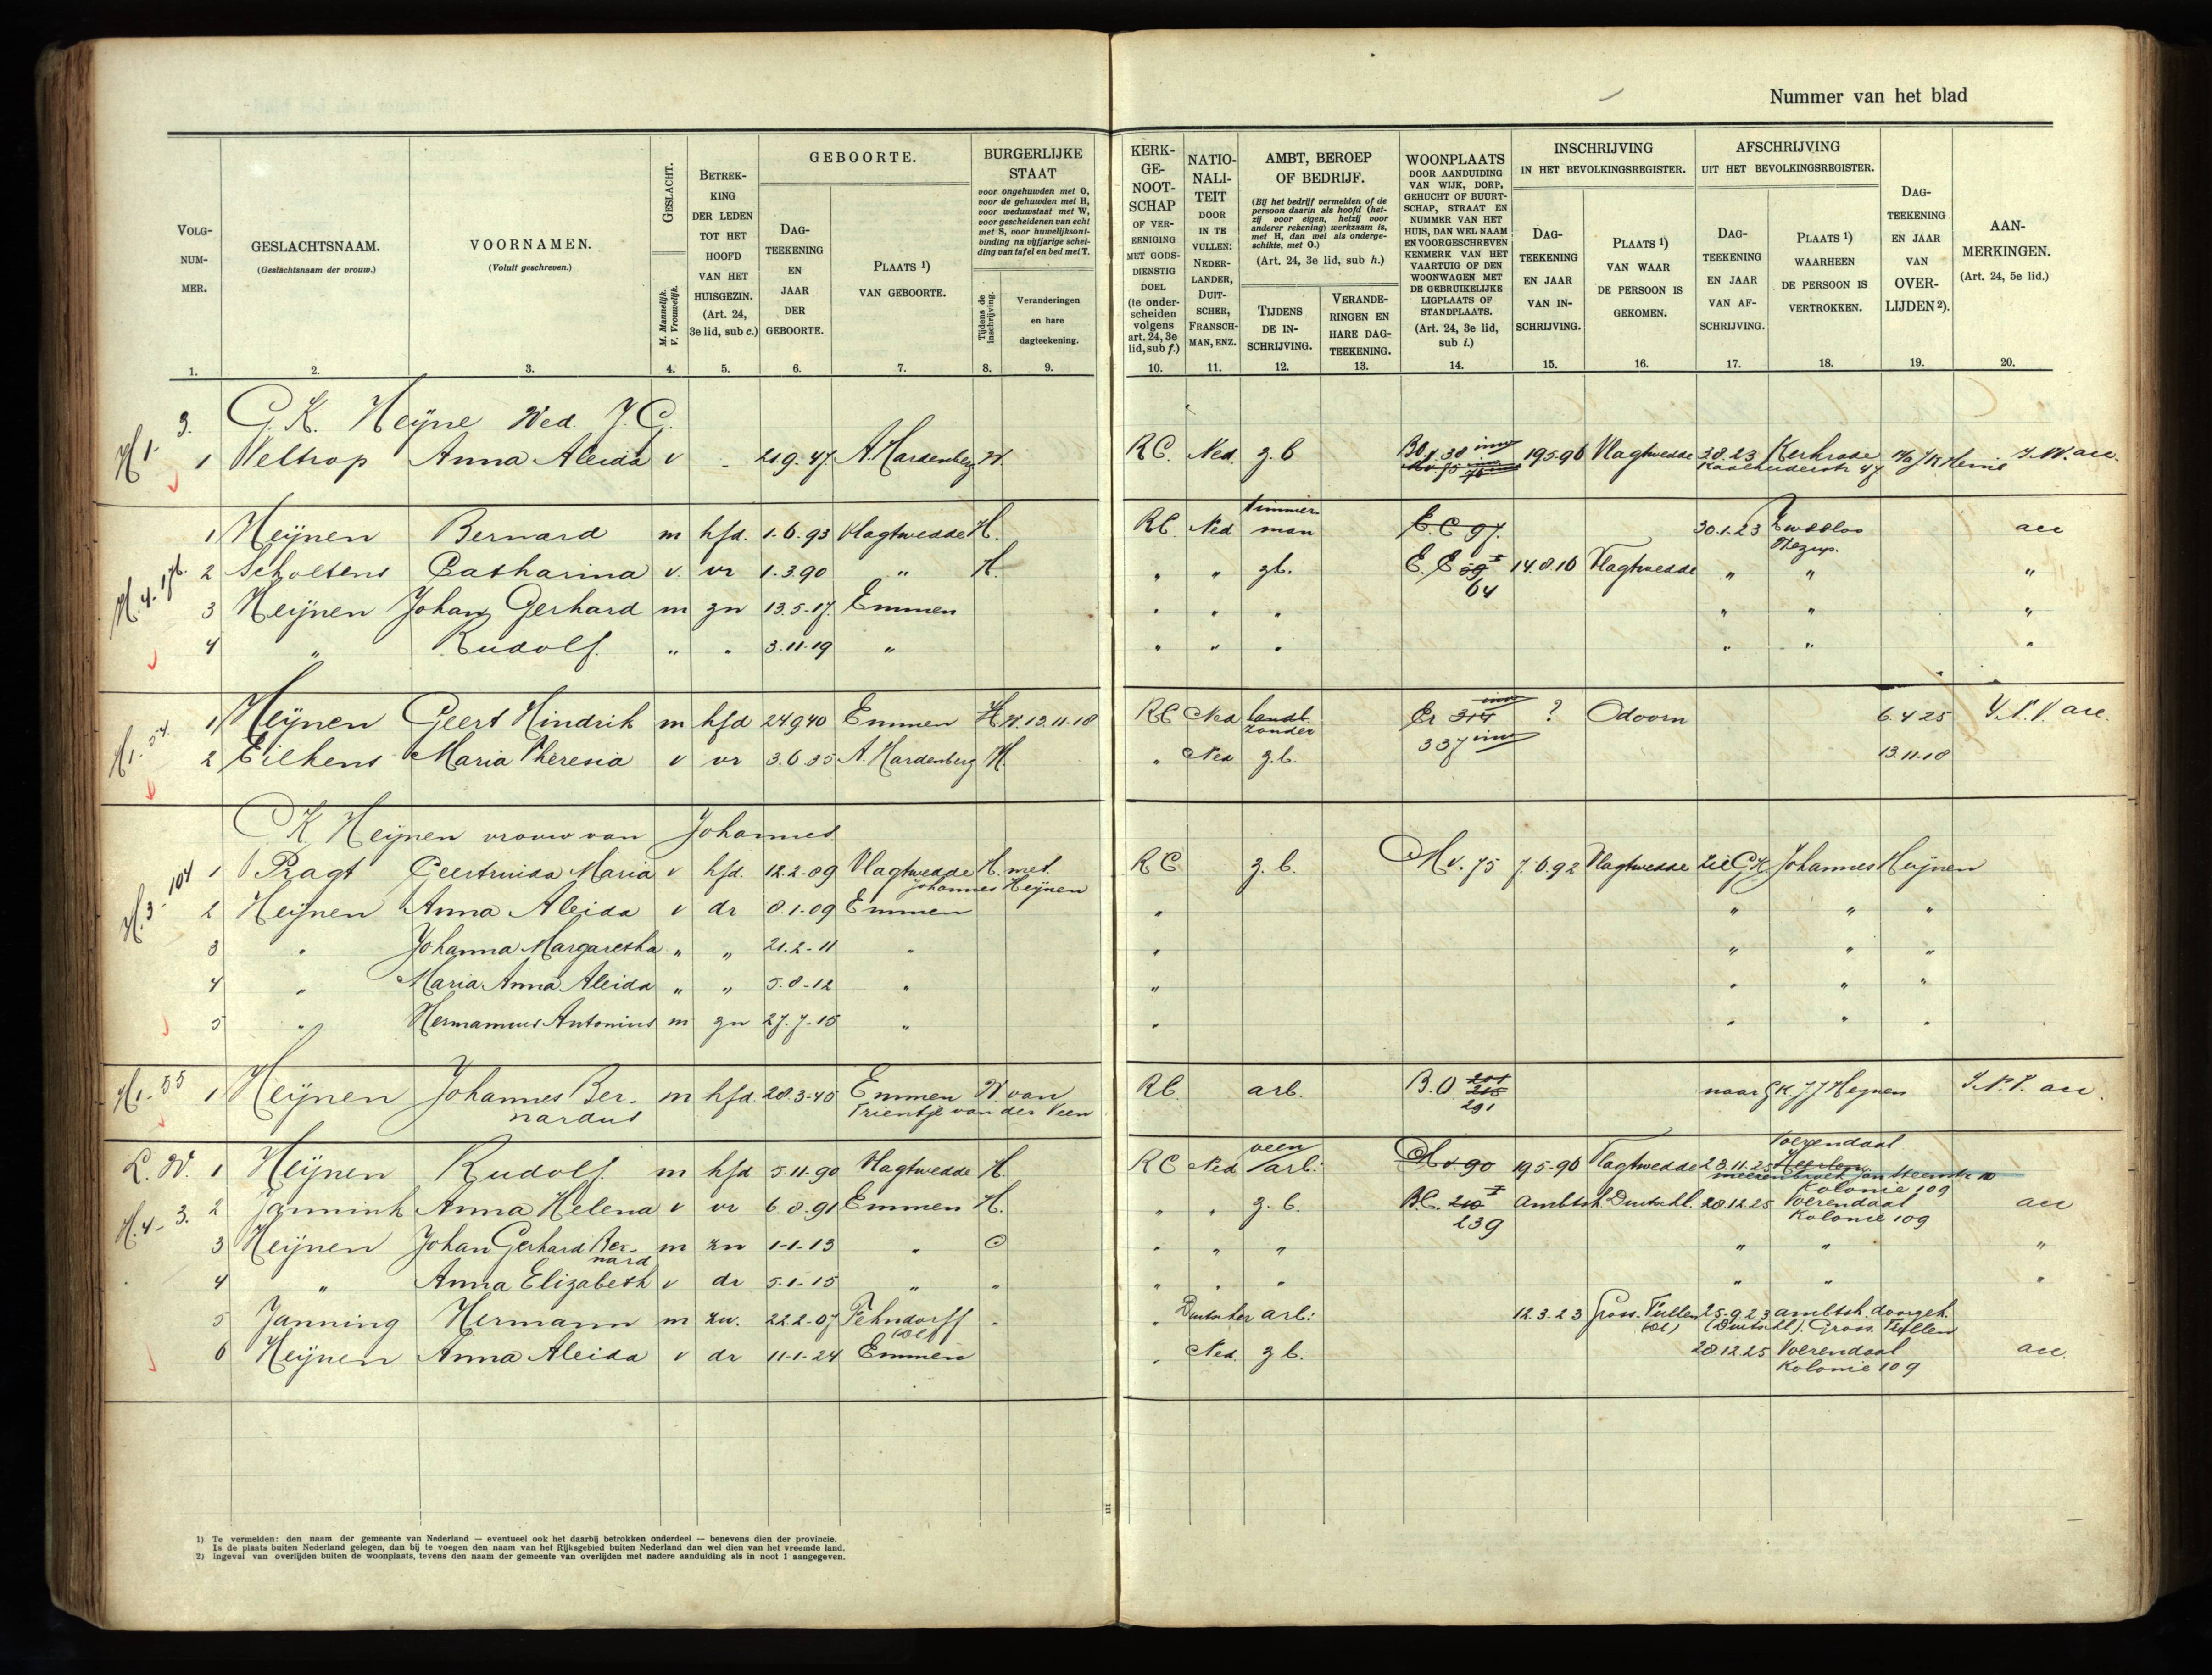 Nummer van het blad
VOLG-NUM-MER.
GESLACHTSNAAM.
(Geslachtsnaam der vrouw.)
VOORNAMEN.
(Voluit geschreven.)
GESLACHT.
M. Mannelijk.
V. Vrouwelijk.
BETREK-KING DER LEDEN TOT HET HOOFD VAN HET HUISGEZIN.
(Art. 24, 3e lid, sub c.)
GEBOORTE.
DAG-TEEKENING EN JAAR DER GEBOORTE.
PLAATS 1) VAN GEBOORTE.
BURGERLIJKE STAAT
voor ongehuwden met O,
voor de gehuwden met H,
voor weduwstaat met W,
voor gescheidenen van echt
met S, voor huwelijksont-
binding na vijfjarige schei-
ding van tafel en bed met T.
Tijdens de inschrijving.
Veranderingen en hare dagteekening.
KERK-GE-NOOT-SCHAP
OF VER-EENIGING MET GODS-DIENSTIG DOEL
(te onder-scheiden volgens art. 24, 3e lid, sub f.)
NATIO-NALI-TEIT
DOOR IN TE VULLEN: NEDER-LANDER, DUIT-SCHER, FRANSCH-MAN, ENZ.
AMBT, BEROEP OF BEDRIJF.
(Bij het bedrijf vermelden of de
persoon daarin als hoofd (het-
zij voor eigen, hetzij voor
anderer rekening) werkzaam is,
met H, dan wel als onderge-
schikte, met O.)
(Art. 24, 3e lid, sub h.)
TIJDENS DE IN-SCHRIJVING.
VERANDE-RINGEN EN HARE DAG-TEEKENING.
WOONPLAATS
DOOR AANDUIDING
VAN WIJK, DORP,
GEHUCHT OF BUURT-
SCHAP, STRAAT EN
NUMMER VAN HET
HUIS, DAN WEL NAAM
EN VOORGESCHREVEN
KENMERK VAN HET
VAARTUIG OF DEN
WOONWAGEN MET
DE GEBRUIKELIJKE
LIGPLAATS OF
STANDPLAATS.
(Art. 24, 3e lid, sub i.)
INSCHRIJVING
IN HET BEVOLKINGSREGISTER.
DAG-TEEKENING EN JAAR VAN IN-SCHRIJVING.
PLAATS 1) VAN WAAR DE PERSOON IS GEKOMEN.
AFSCHRIJVING
UIT HET BEVOLKINGSREGISTER.
DAG-TEEKENING EN JAAR VAN AF-SCHRIJVING.
PLAATS 1) WAARHEEN DE PERSOON IS VERTROKKEN.
DAG-TEEKENING EN JAAR VAN OVER-LIJDEN 2).
AAN-MERKINGEN.
(Art. 24, 5e lid.)
1. 2. 3. 4. 5. 6. 7. 8. 9. 10. 11. 12. 13. 14. 15. 16. 17. 18. 19. 20.
H 1. 3. G. K. Heijne Wed. J. G.
1 Weltrop Anna Aleida v - 21.9.47 A. Hardenberg W. RC. Ned. z.b 19596 Vlagtwedde 30.23 Kerkrade
1 Heijnen Bernard m hfd. 1.6.93 Vlagtwedde H. RC Ned timmerman E.C 97. 30.1.23 acc
H. 4. 176. 2 Scholtens Catharina v. vr 1.3.90 " H. " " zb. E. E 64 14.8.16 Vlagtwedde " " "
3 Heijnen Johan Gerhard m zn 13.5-17. Emmen " " " " " "
4 " Rudolf. " " 3.11.19 " " " " " " "
H1. 54. 1 Heijnen Geert Hindrik m hfd 24940 Emmen H W. 13.11.18 RC Ned landb. zonder Er 314 337 ? Odoorn 6.4 25 acc.
2 Eilkens Maria Theresia v vr 3.6.35 A. Hardenberg H. " Ned z.b. 13.11.18
G K Heijnen vrouw van Johannes
H. 3 - 104 1 Pragt Geertruida Maria v hfd. 12.2-89 Vlagtwedde H. met Johannes Heijnen RC z.b. M v. 75 7.6.92 Vlagtwedde zie G.K. Johannes Heijnen
2 Heijnen Anna Aleida v dr 8.1-09 Emmen " " " "
3 " Johanna Margaretha " " 21.2-11 " " " " "
4 " Maria Anna Aleida " " 5.8-12 " " " " "
5 " Hermannus Antonius m zn 27.7-15 " " " " "
H1. 55 1 Heijnen Johannes Bernardus m hfd 28.3-40 Emmen W van Trientje van der Veen RC. arb. B.O 291 naar GK JJ Heijnen acc.
L. W. 1 Heijnen Rudolf. m hfd 5 11-90 Vlagtwedde H. RC Ned veen arb: M v 90 19.5-96 Vlagtwedde 28.11.25 Heerlen Voerendaal Kolonie 109
H. 4 - 3. 2 Jannink Anna Helena v vr 6.8.91 Emmen H. " " z.b. B.C. 210 239 Ambtsh. Duitschl. 28.12.25 Voerendaal Kolonie 109 acc
3 Heijnen Johan Gerhard Bernard m zn 1-1-13 " O " " " " " "
4 " Anna Elizabeth v dr 5.1-15 " " " " " " " "
5 Janning Hermann m zn. 22.2-07 Fehndorff " " Duitscher arb: 12.3.23 Gross. Füllen 25-9 23 ambtsh. doorgeh. (Duitschl). Gross. Füllen
6 Heijnen Anna Aleida v dr 11-1-24 Emmen " Ned. zb. 28.12.25 Voerendaal Kolonie 109 acc.
1) Te vermelden: den naam der gemeente van Nederland — eventueel ook het daarbij betrokken onderdeel — benevens dien der provincie.
Is de plaats buiten Nederland gelegen, dan bij te voegen den naam van het Rijksgebied buiten Nederland dan wel dien van het vreemde land.
2) Ingeval van overlijden buiten de woonplaats, tevens den naam der gemeente van overlijden met nadere aanduiding als in noot 1 aangegeven.